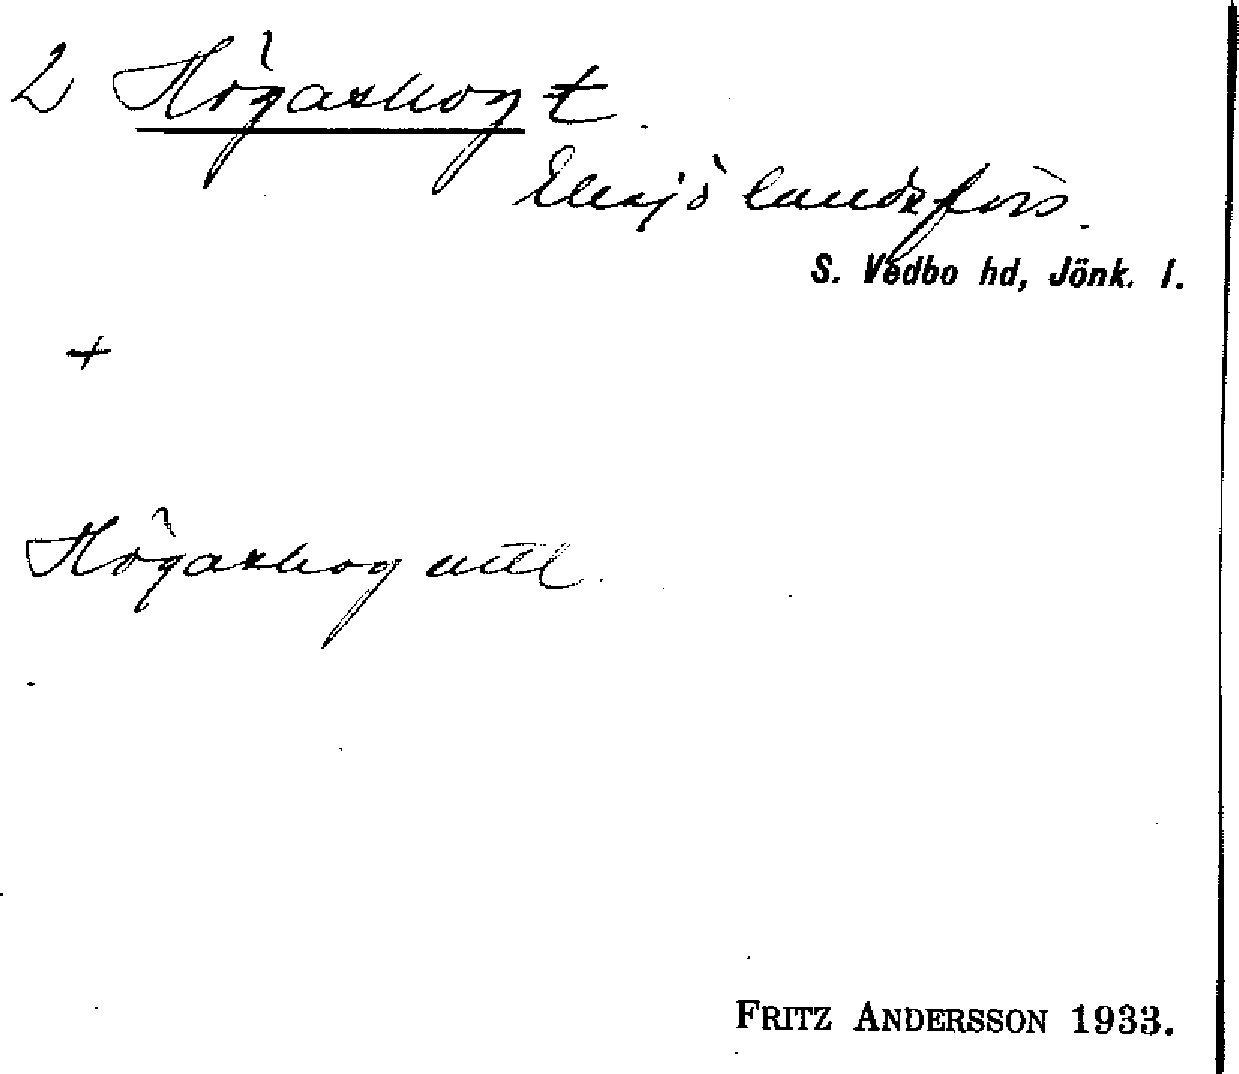 2 Högaskog t.
Eksjö landsförs.
S. Vedbo hd, Jönk. l.
+
Högaskog uttl.
FRITZ ANDERSSON 1933.